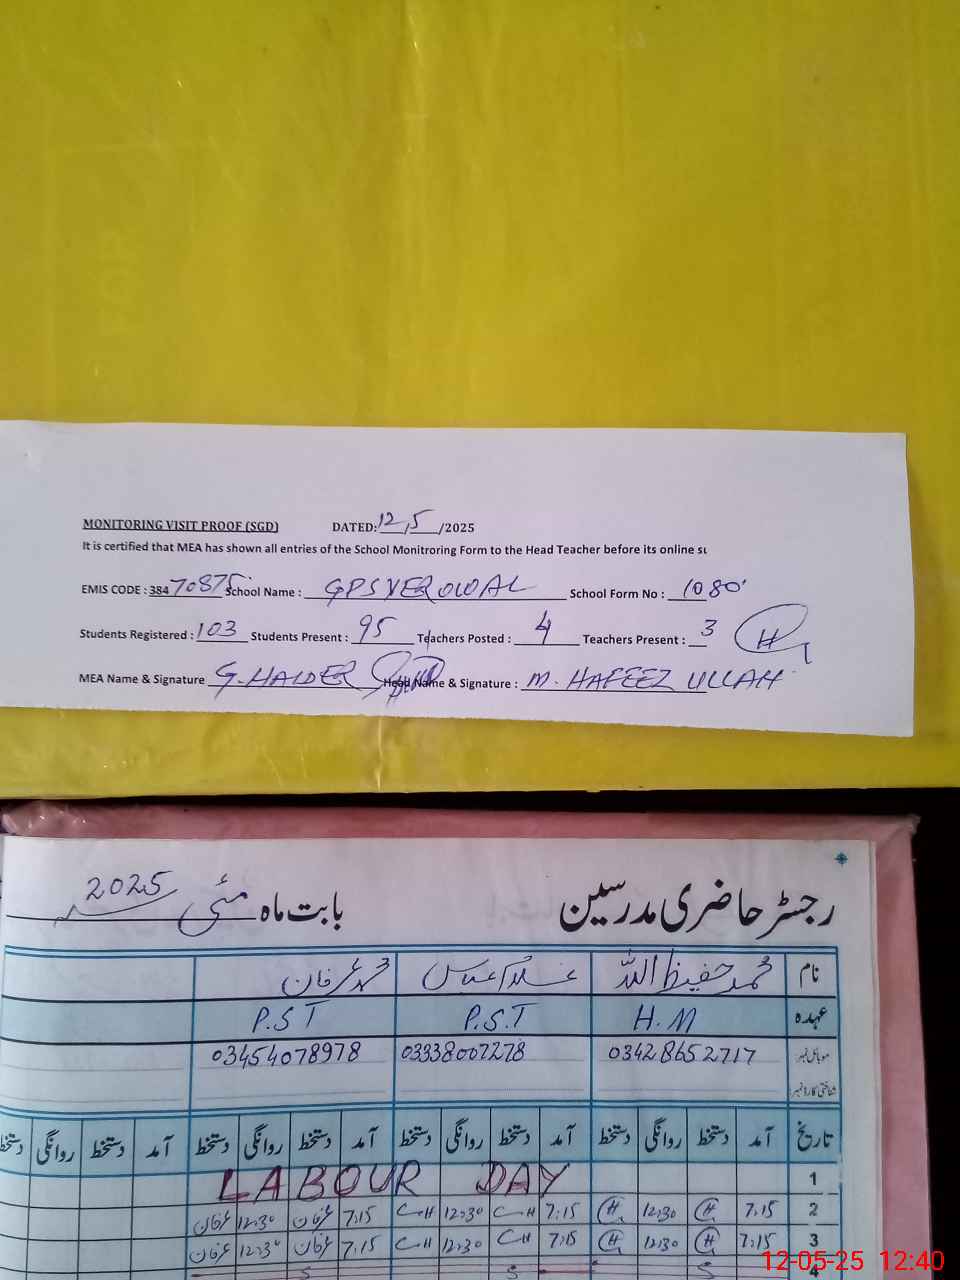 MONITORING VISIT PROOF (SGD) DATED: 12/5/2025
It is certified that MEA has shown all entries of the School Monitroring Form to the Head Teacher before its online su
EMIS CODE : 384 70875 School Name : GPS VEROWAL School Form No : 1080
Students Registered : 103 Students Present : 95 Teachers Posted : 4 Teachers Present : 3
MEA Name & Signature G. HAIDER Head Name & Signature : M. HAFEEZ ULLAH
رجسٹر حاضری مدرسین بابت ماہ مئی 2025
نام محمد حفیظ اللہ غلام عباس محمد عرفان
عہدہ H.M P.S.T P.S.T
موبائل نمبر 03428652717 03338007278 03454078978
شناختی کارڈ نمبر
تاریخ آمد دستخط روانگی دستخط آمد دستخط روانگی دستخط آمد دستخط روانگی دستخط آمد دستخط روانگی دستخط
1 LABOUR DAY
2 7:15 H 12:30 H 7:15 12:30 7:15 عرفان 12:30 عرفان
3 7:15 H 12:30 H 7:15 12:30 7:15 عرفان 12:30 عرفان
4 S S S
12-05-25 12:40